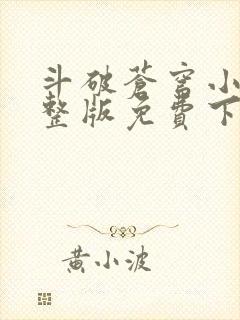 斗破蒼穹小
整版免費下
黃小波